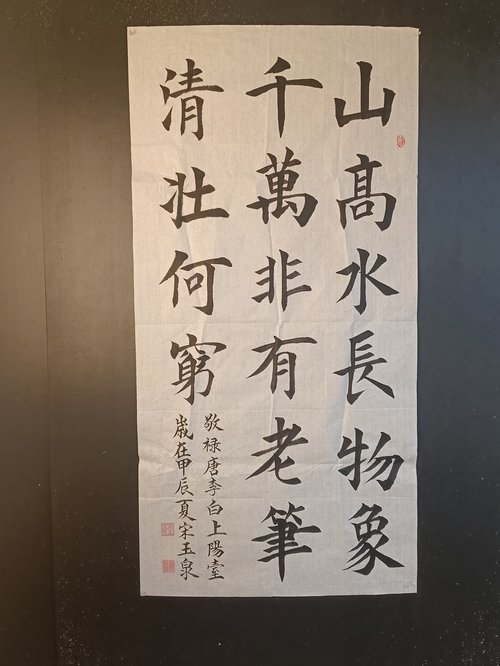 山高水長物象
千萬非有老筆
清壯何窮
敬祿唐李白上陽臺
歲在甲辰夏宋玉泉